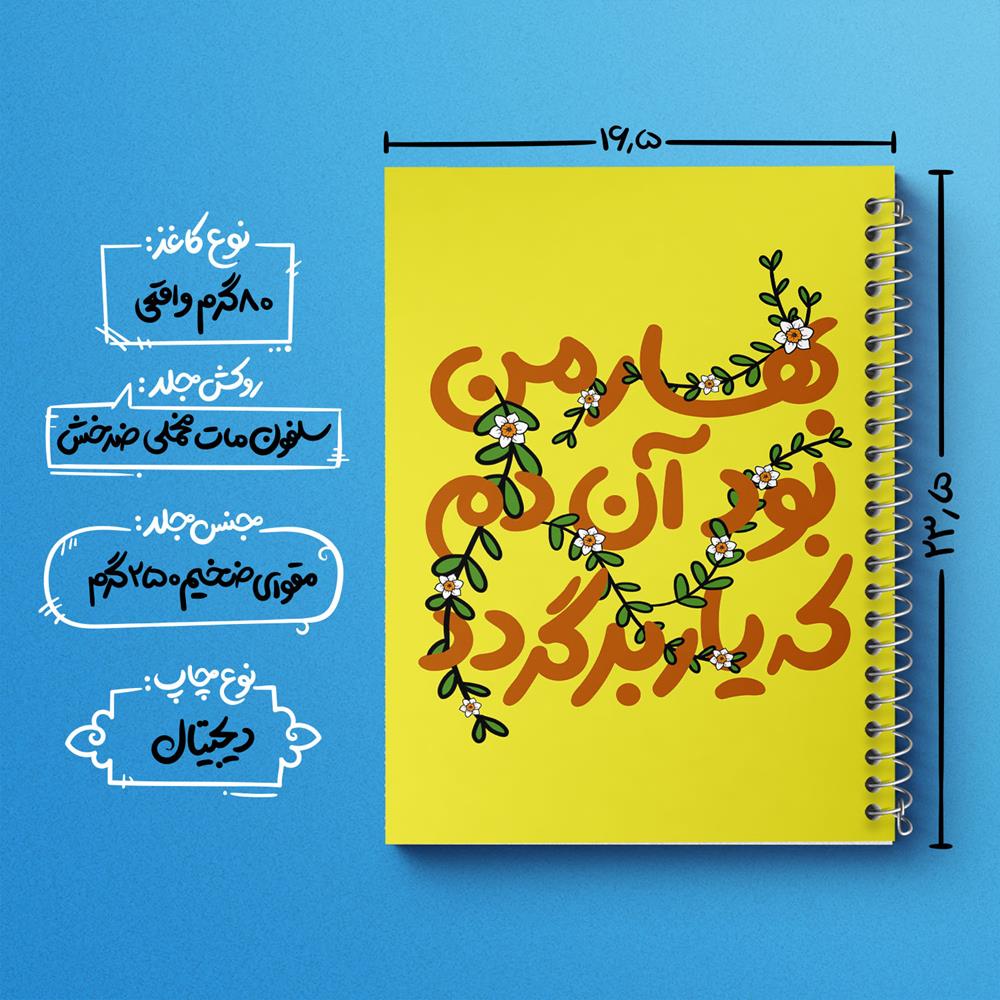 ۱۶,۵
۲۳,۵
بهار من
بود آن دم
که یار برگردد
نوع کاغذ:
۸۰ گرم واقعی
روکش جلد:
سلفون مات مخملی ضدخش
جنس جلد:
مقوای ضخیم ۲۵۰ گرم
نوع چاپ:
دیجیتال